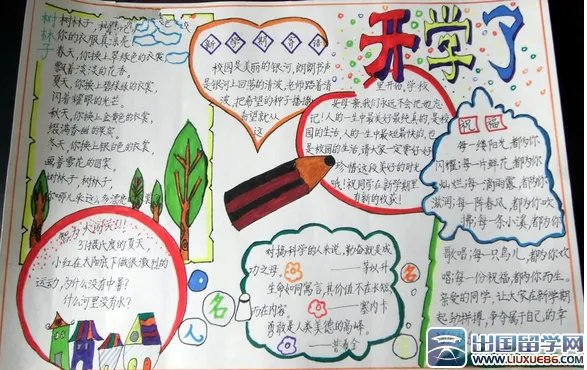 开学了
树林子
树林子，
你的衣服真漂亮
春天，你换上翠绿色的衣裳
飘着淡淡的花香。
夏天，你换上碧绿绿的衣裳
闪着耀眼的光芒。
秋天，你换上金黄色的衣裳
缀满香甜的果实。
冬天，你换上银白色的衣裳
画着雪花的图案
树林子，树林子，
你哪儿来这么多漂亮
新学期寄语
校园是美丽的银河，朗朗书声
是银河上回荡的清波，老师踏着清
波，把希望的种子播播
希望就从
这
里开始，学校
是母亲，我们永远不会把她忘
记！人的一生中最美好最纯真的，是校
园的生活，人的一生中最短最快的，也
是校园的生活，请大家一定要好好
珍惜这段美好的时光
哦！祝同学在新学期里
有新的收获！
祝福
每一缕阳光，都为你
闪耀；每一片鲜花，都为你
灿烂；每一滴雨露，都为你
滋润；每一阵春风，都为你吹
拂；每一条小溪，都为你
歌唱；每一只鸟儿，都为你欢
唱；每一份祝福，都为你而生。
亲爱的同学，让大家在新学期
起劲拼搏，争夺属于自己的幸
智力大闯关!!!
31摄氏度的夏天，
小红在太阳底下做很激烈的
运动，为什么没有中暑？
什么河里没有水？
名人名
对搞科学的人来说，勤奋就是成
功之母。——茅以升
生命如同寓言，其价值不在长短
而在内容。——塞内卡
勇敢是人类美德的高峰。
——普希金
出国留学网
WWW.LIUXUE86.COM